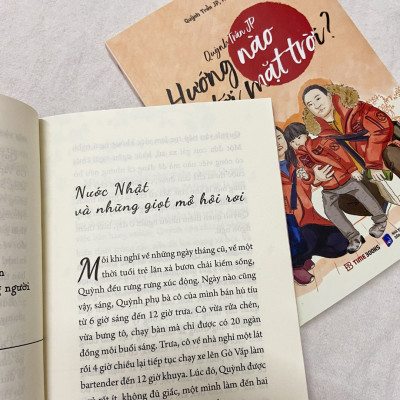 Quỳnh Trần JP,
Quỳnh Trần JP
Hướng nào
mặt trời?
TIMES BOOKS
Nước Nhật
và những giọt mồ hôi rơi
Mỗi khi nghĩ về những ngày tháng cũ, về một
thời tuổi trẻ lăn xả bươn chải kiếm sống,
Quỳnh đều rưng rưng xúc động. Ngày nào cũng
vậy, sáng, Quỳnh phụ bà cô của mình bán hủ tíu
từ 6 giờ sáng đến 12 giờ trưa. Cô vừa rửa chén,
vừa bưng tô, chạy bàn mà chỉ được có 20 ngàn
đồng mỗi buổi sáng. Trưa, cô về nhà nghỉ một lát
rồi 4 giờ chiều lại tiếp tục chạy xe lên Gò Vấp làm
bartender đến 12 giờ khuya. Lúc đó, Quỳnh được
rất ít, không đủ giấc, một mình làm đến hai
người